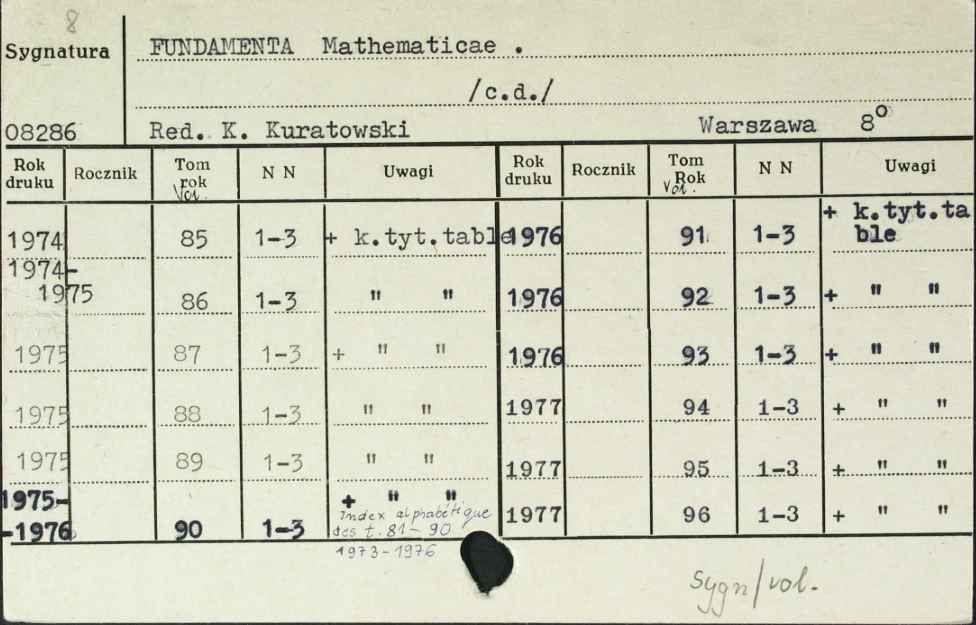 8
Sygnatura
FUNDAMENTA Mathematicae .
/c.d./
08286
Red. K. Kuratowski Warszawa 8°
Rok druku Rocznik Tom rok Vol. N N Uwagi Rok druku Rocznik Tom Rok Vol. N N Uwagi
1974 85 1-3 + k.tyt.table 1976 91 1-3 + k.tyt.table
1974-1975 86 1-3 " " 1976 92 1-3 + " "
1975 87 1-3 + " " 1976 93 1-3 + " "
1975 88 1-3 " " 1977 94 1-3 + " "
1975 89 1-3 " " 1977 95 1-3 + " "
1975--1976 90 1-3 + " " 1977 96 1-3 + " "
Index alphabétique
des t. 81-90
1973-1976
Sygn/vol.